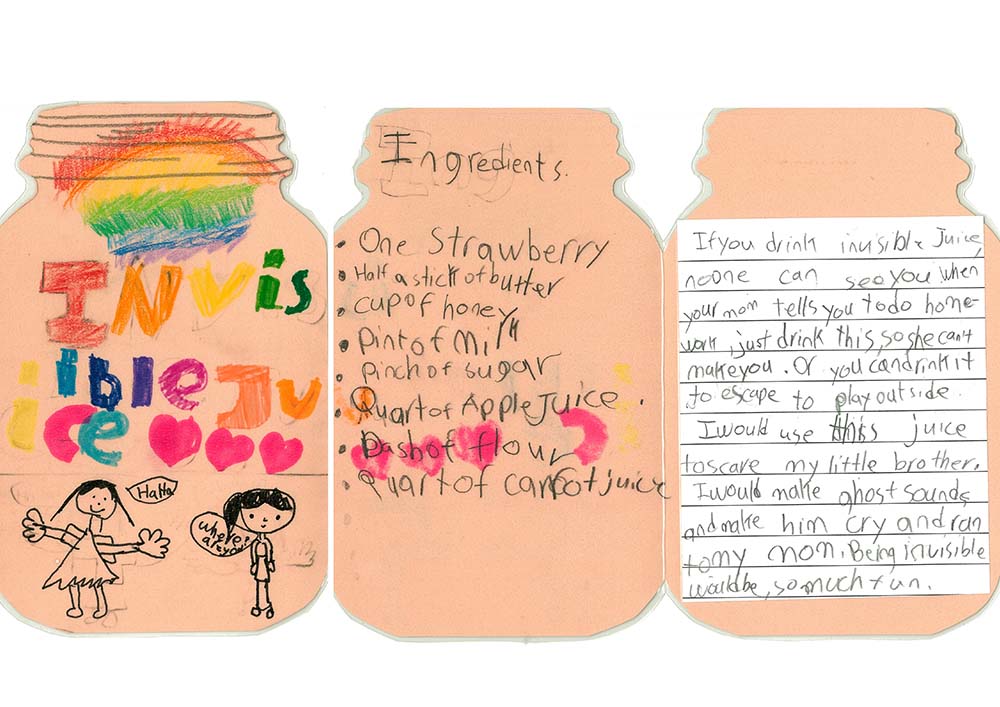 INvis
ibleJu
ice
Haha
where
are you?
Ingredients.
One Strawberry
Half a stick of butter
cup of honey
Pint of Milk
Pinch of sugar
Quart of Apple Juice.
Dash of flour
Quart of carrot juice
If you drink invisible Juice,
noone can see you when
your mom tells you to do home-
work, just drink this, so she can't
make you. Or you can drink it
to escape to play outside.
I would use this juice
to scare my little brother.
I would make ghost sounds
and make him cry and ran
to my mom. Being invisible
would be, so much fun.